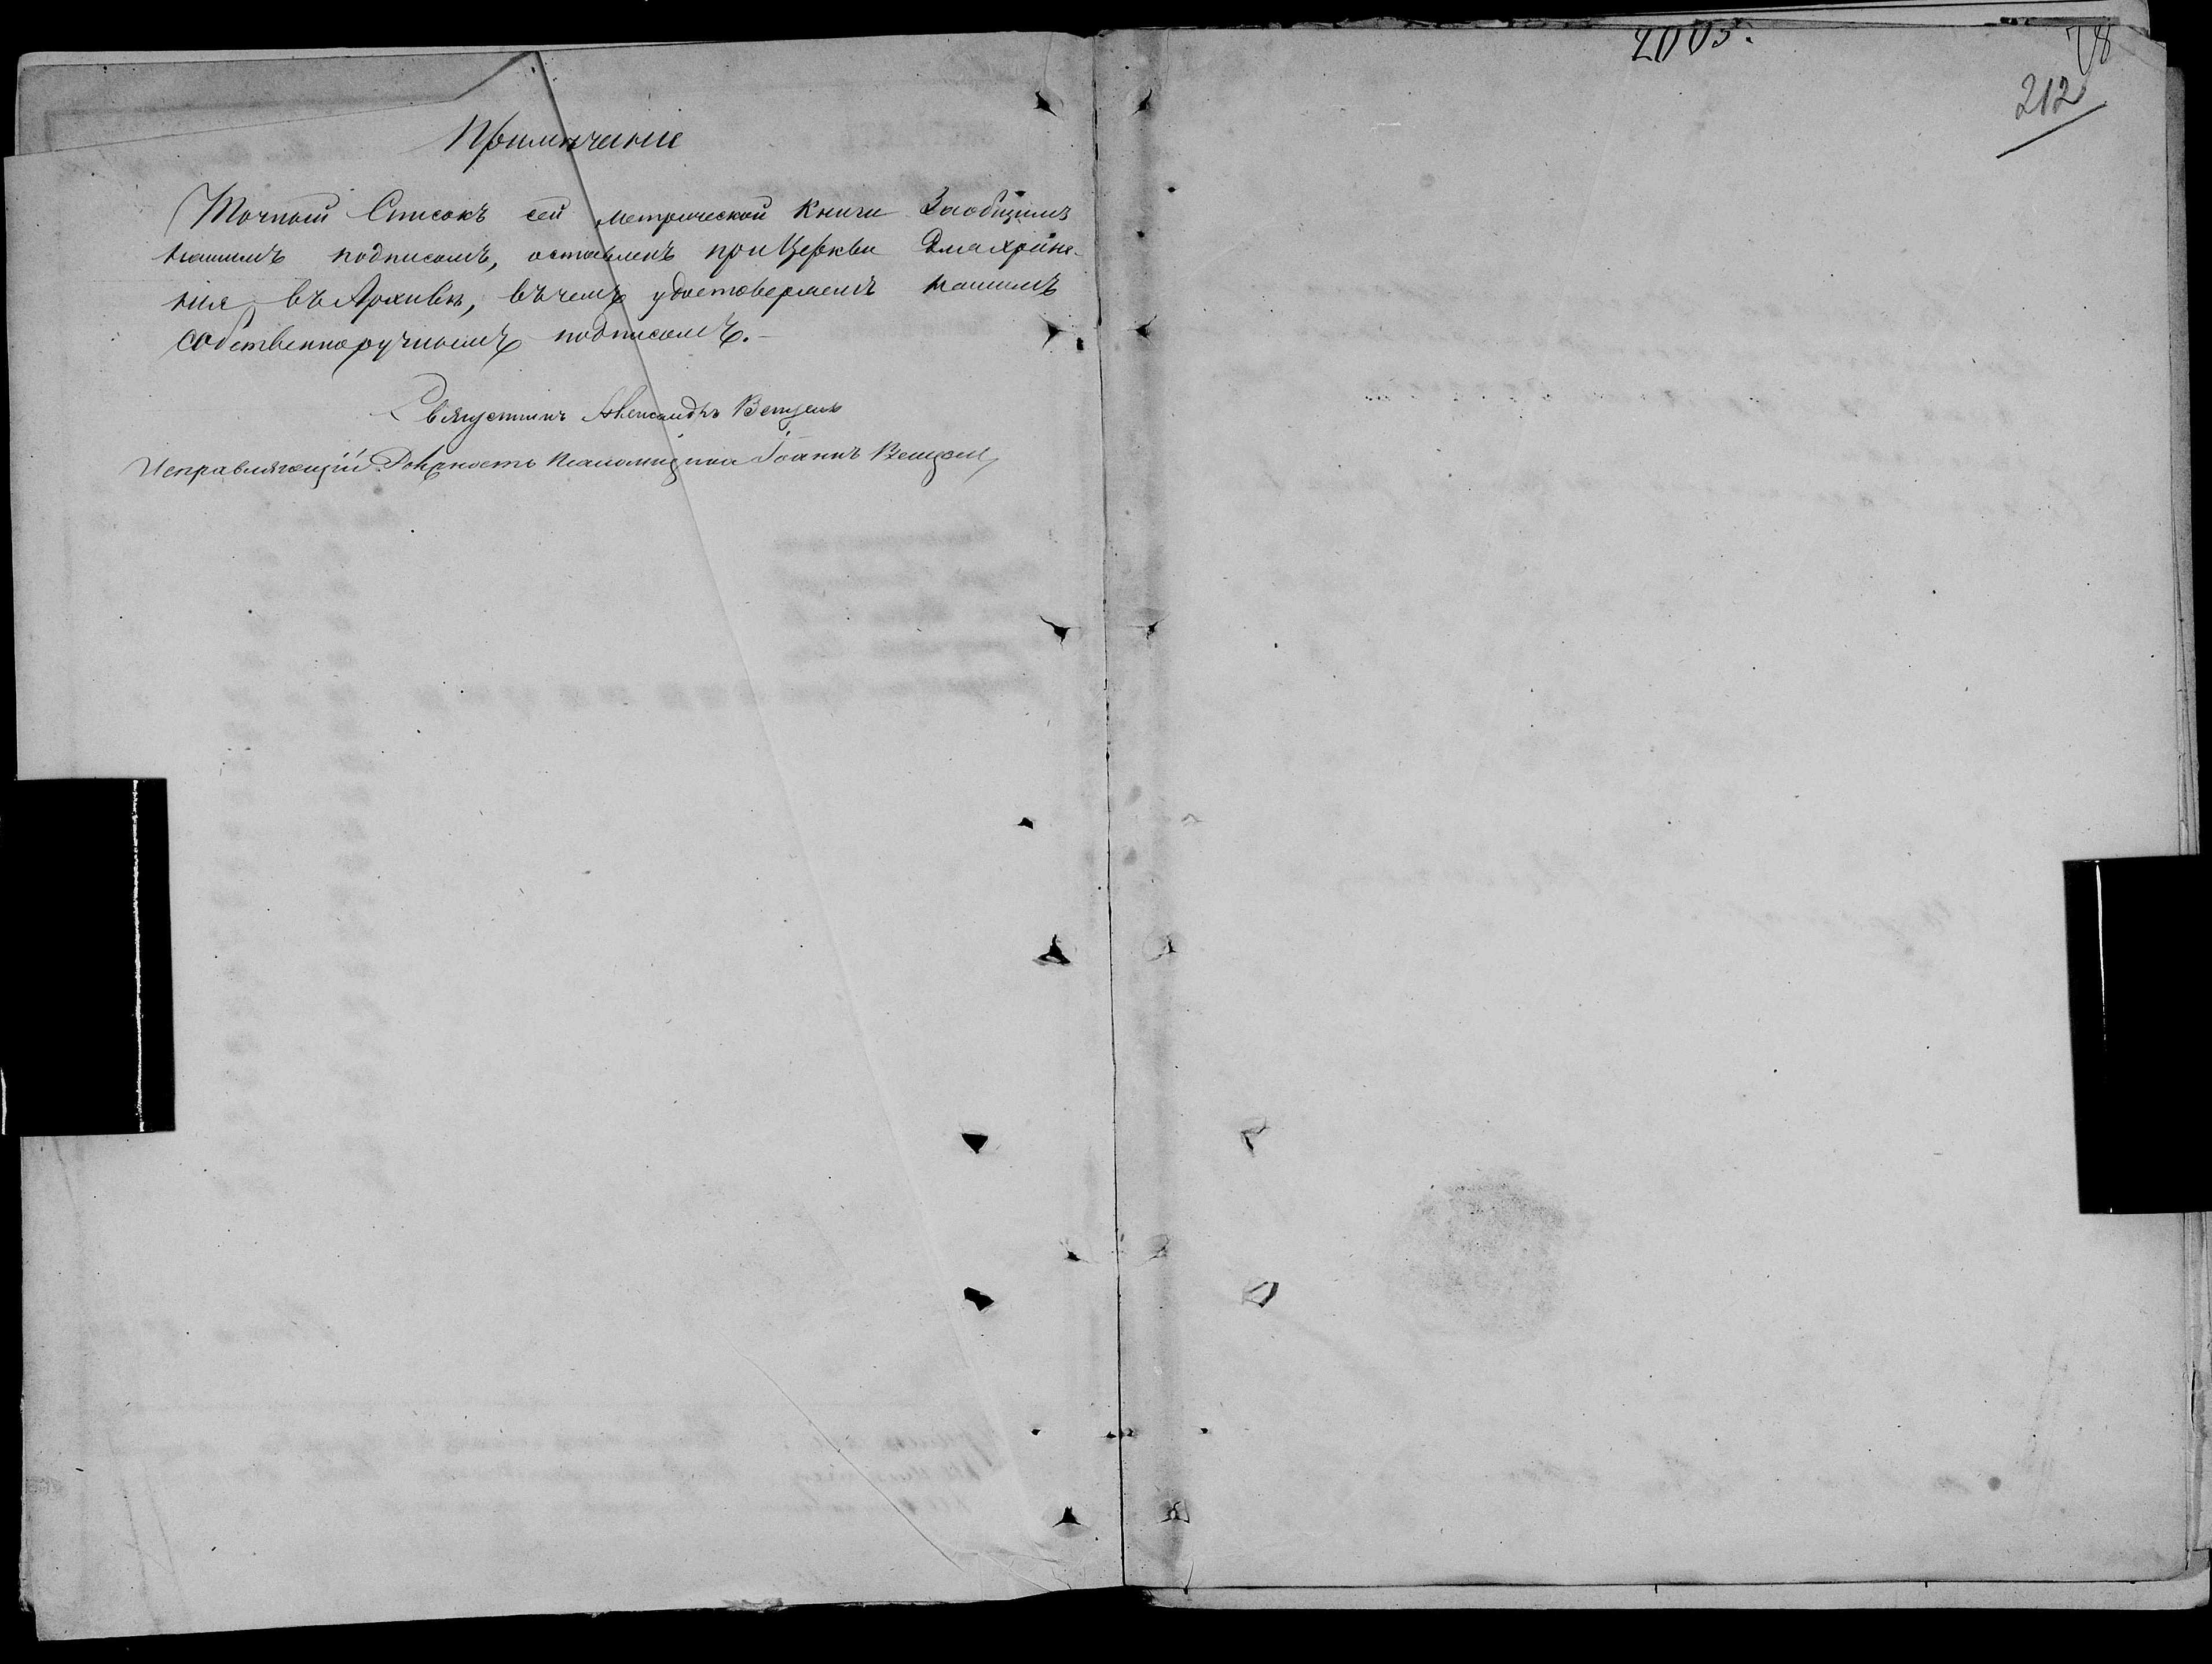 Примѣчаніе
Точный Списокъ сей метрической книги Заобщимъ
нашимъ подписомъ, оставленъ при Церкви Для хране-
нія въ Архивѣ, въ чемъ удостоверяемъ нашимъ
собственноручнымъ подписомъ.-
Александръ
Исправляющій Должность Псаломщика Іоаннъ
2003.
78
212